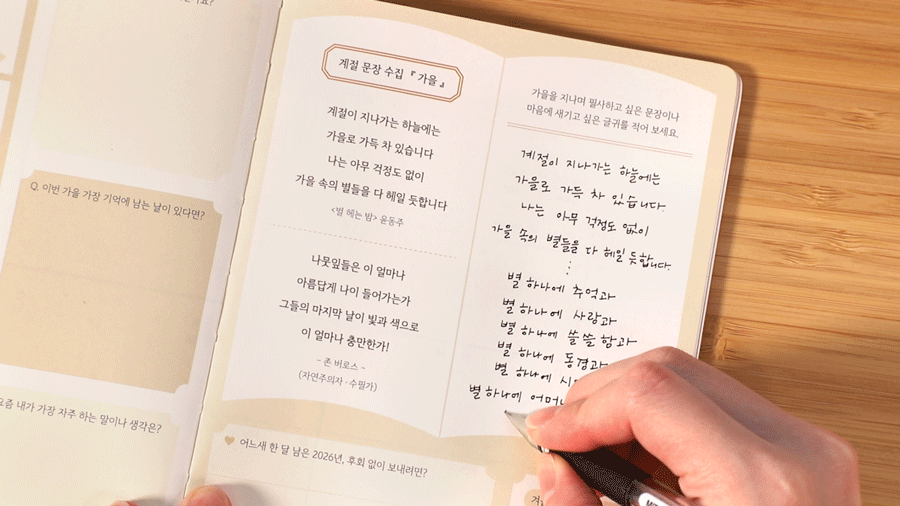 Q. 이번 가을 가장 기억에 남는 날이 있다면?
내가 가장 자주 하는 말이나 생각은?
계절 문장 수집 『가을』
계절이 지나가는 하늘에는
가을로 가득 차 있습니다
나는 아무 걱정도 없이
가을 속의 별들을 다 헤일 듯합니다
<별 헤는 밤> 윤동주
나뭇잎들은 이 얼마나
아름답게 나이 들어가는가
그들의 마지막 날이 빛과 색으로
이 얼마나 충만한가!
- 존 버로스 -
(자연주의자 · 수필가)
어느새 한 달 남은 2026년, 후회 없이 보내려면?
가을을 지나며 필사하고 싶은 문장이나
마음에 새기고 싶은 글귀를 적어 보세요.
계절이 지나가는 하늘에는
가을로 가득 차 있습니다.
나는 아무 걱정도 없이
가을 속의 별들을 다 헤일 듯합니다.
⋮
별 하나에 추억과
별 하나에 사랑과
별 하나에 쓸쓸함과
별 하나에 동경과
별 하나에
별 하나에 어머니